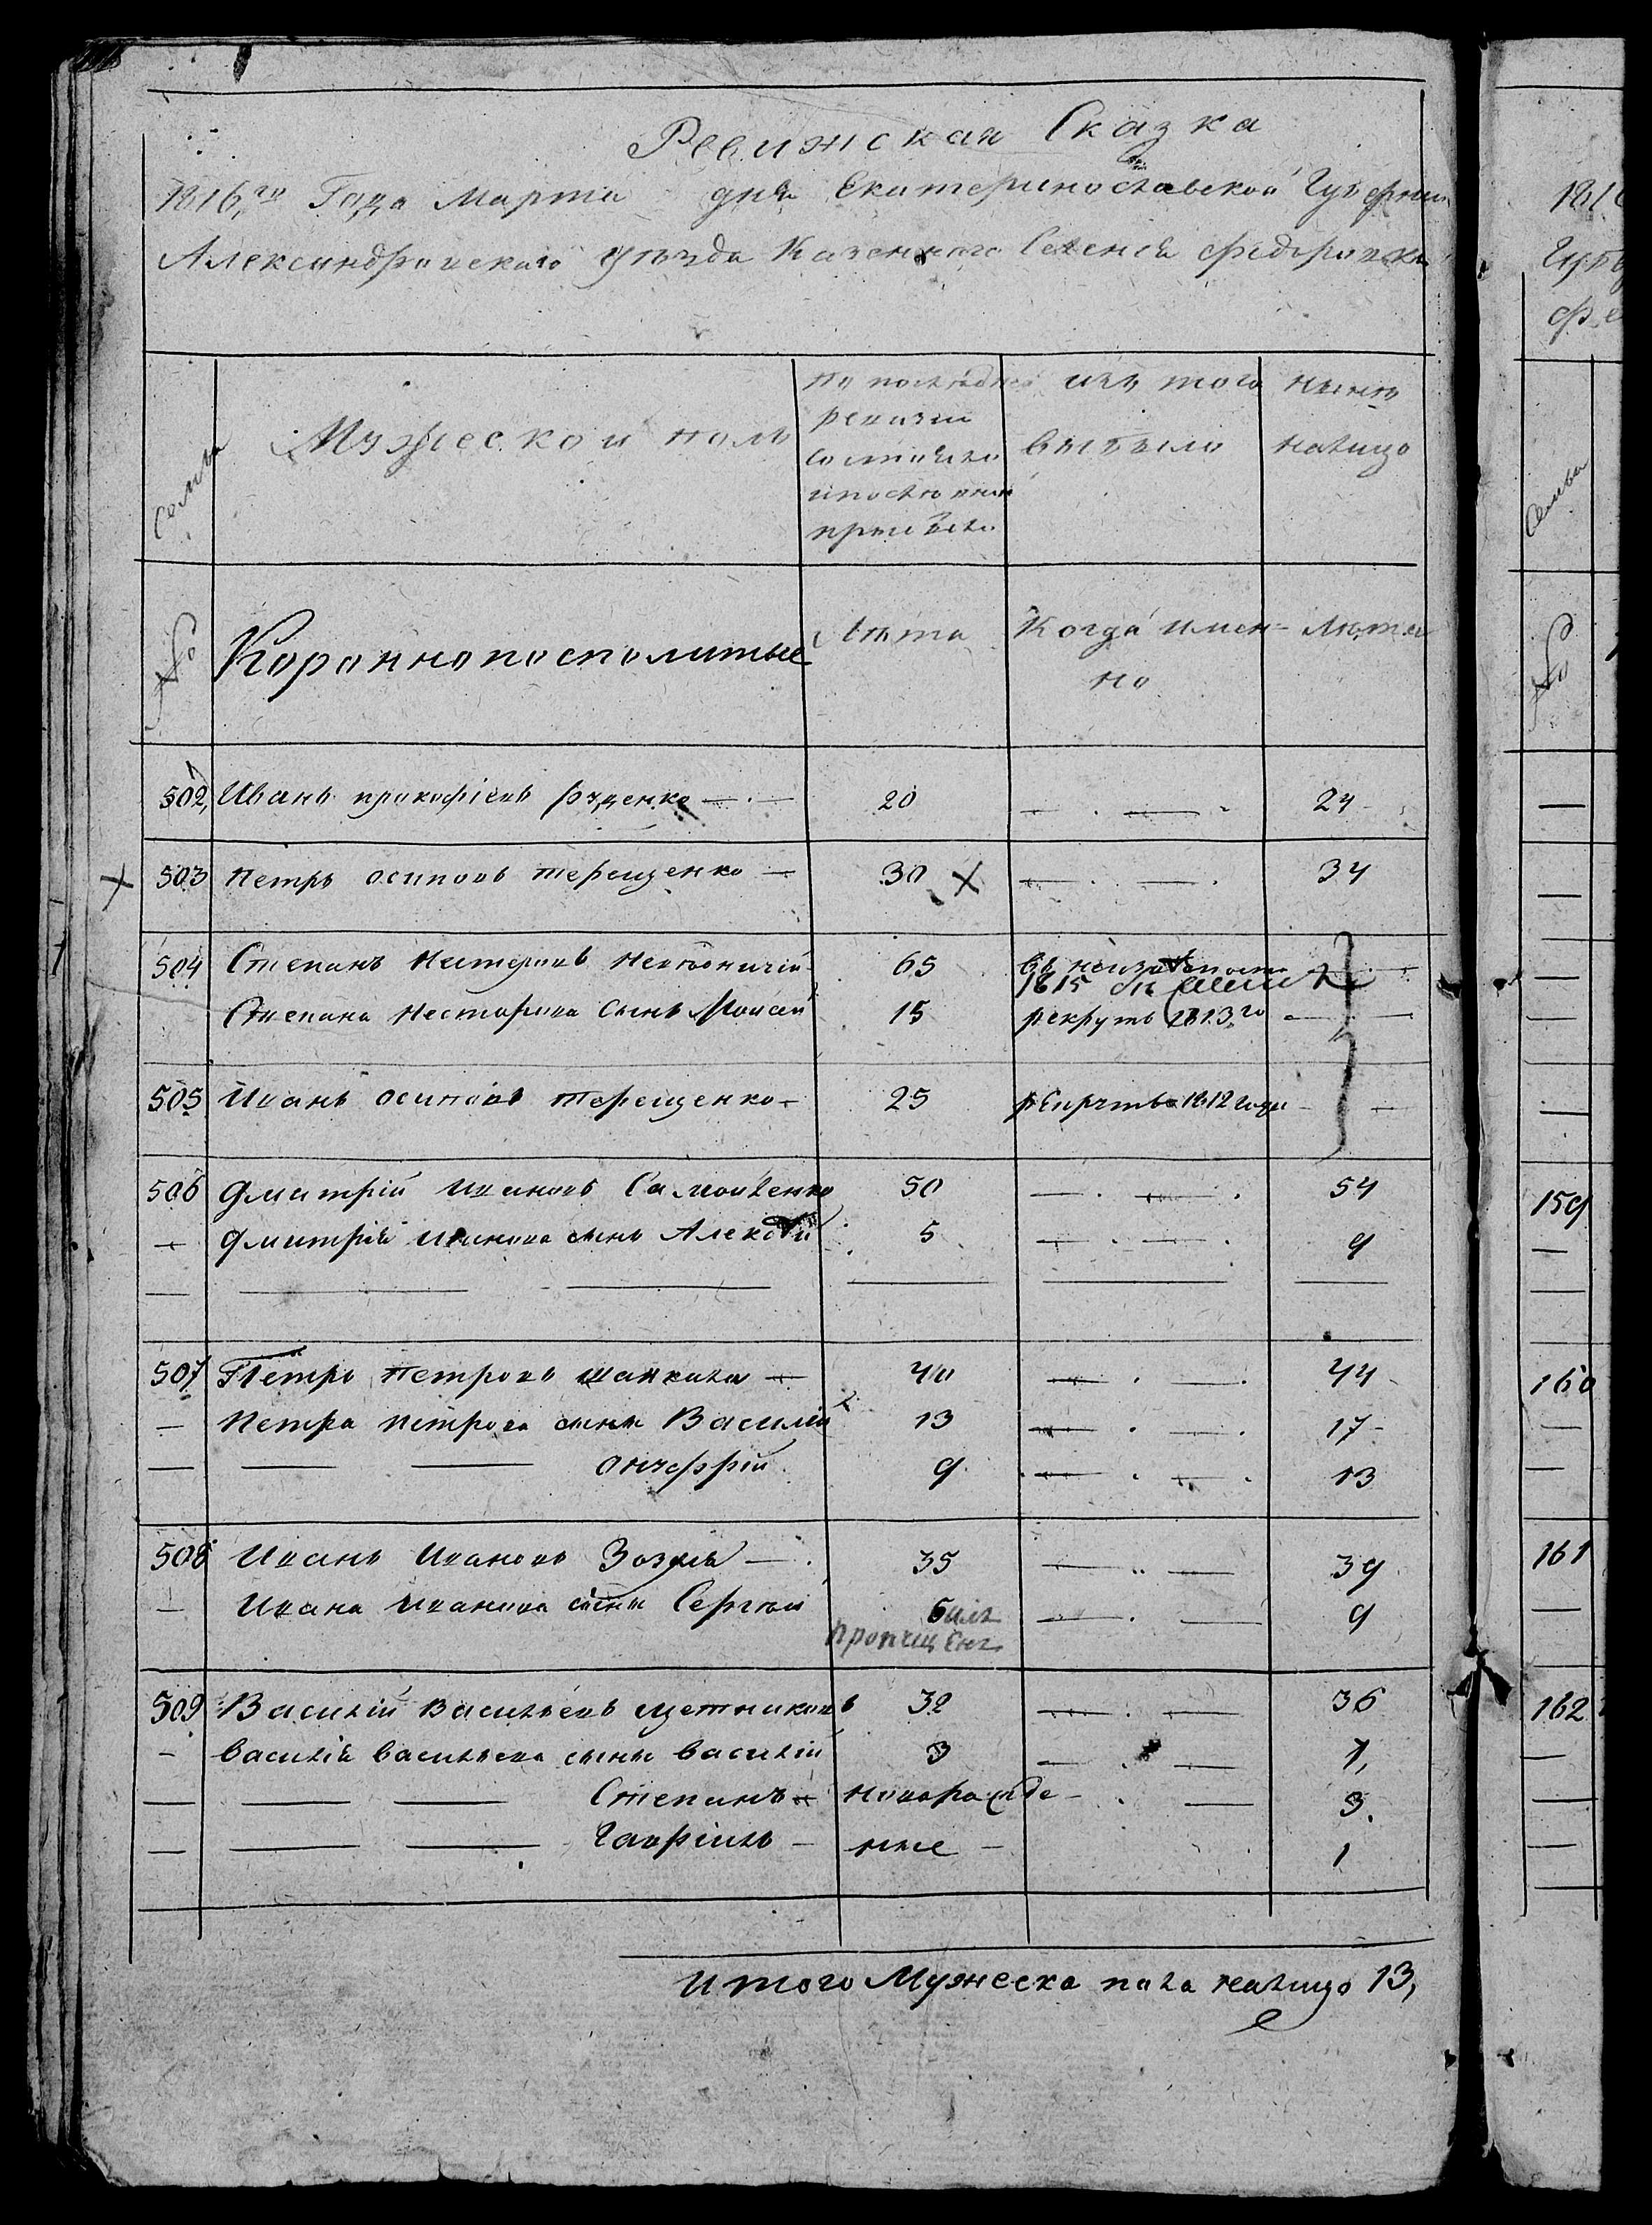 Ревижская Сказка
1816,го Года Марта дня Екатеринославской Губернии
Александровского уѣзда Казенного Селения Федоровки
Семьи
Мужеской полъ
по последней ревизии состояло и после оной прибыло
изъ того выбыло
ныне налицо
№
Короннопосполитые
Лѣта
Когда имен-но
Лѣта
502, Иванъ прокофіевъ руденко — . — 20 24
503 Петръ осиповъ терещенко — 30 34
504 Степанъ Нестеровъ 65 въ неизвестности 1815
Степана Нестерова сынъ Моисей 15 рекрутъ 1813го
505 Иванъ осиповъ терещенко — 25 1812 года
506 Дмитрій Ивановъ Самойленко 50 54
— Дмитрія Иванова сынъ Алексѣй 5 9
507 Петръ Петровъ 40 44
— Петра петрова сыны Василій 13 17
— — — онуфрій 9 13
508 Иванъ Ивановъ Зозуля — 35 39
— Ивана Иванова сынъ Сергей билъ пропущенъ 9
509 Василій Васильевъ щетниковъ 32 36
— василія васильева сыны василій 3 7,
— — — Степанъ — новорожде- 3.
— — — Гавріилъ — ные — 1
Итого Мужеска пола налицо 13,
181
Губ
Семьи
№
159
160
161
162